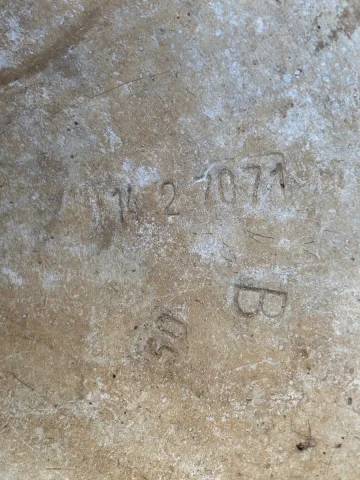 14 2 1071
B
50